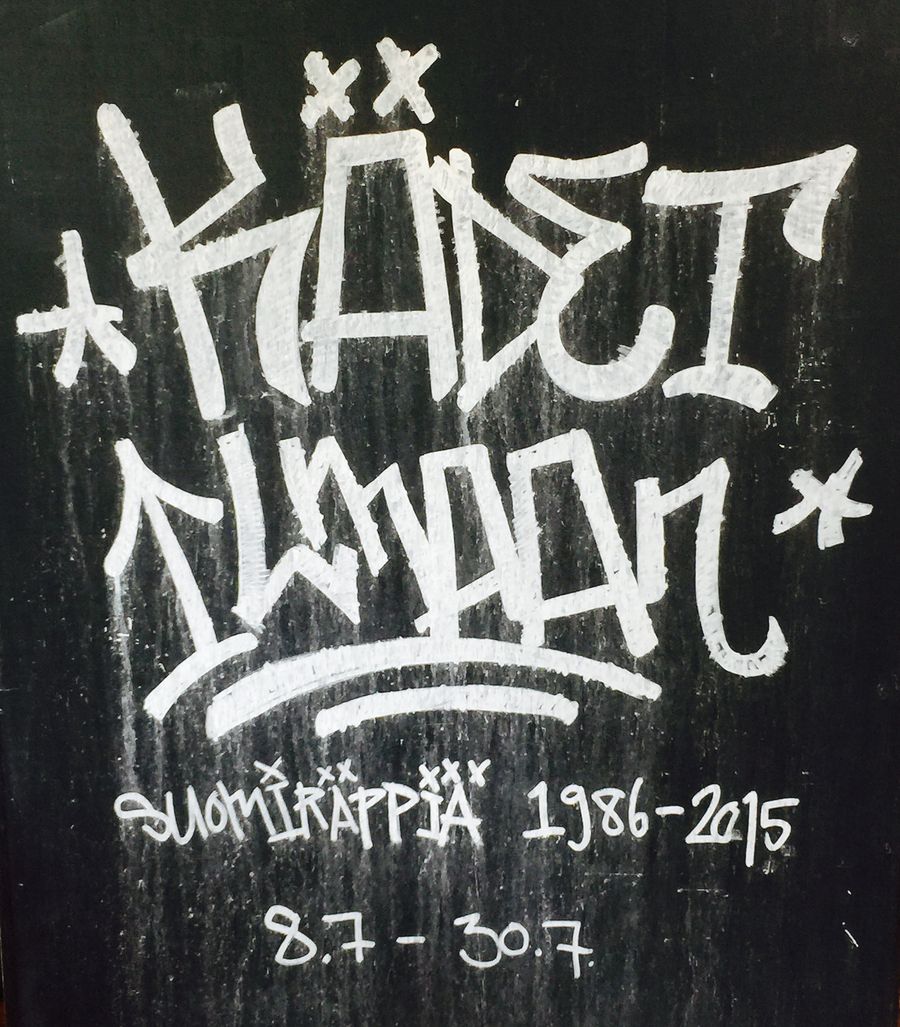 *KÄDET
ILMAAN*
SUOMIRÄPPIÄ 1986-2015
8.7 - 30.7.